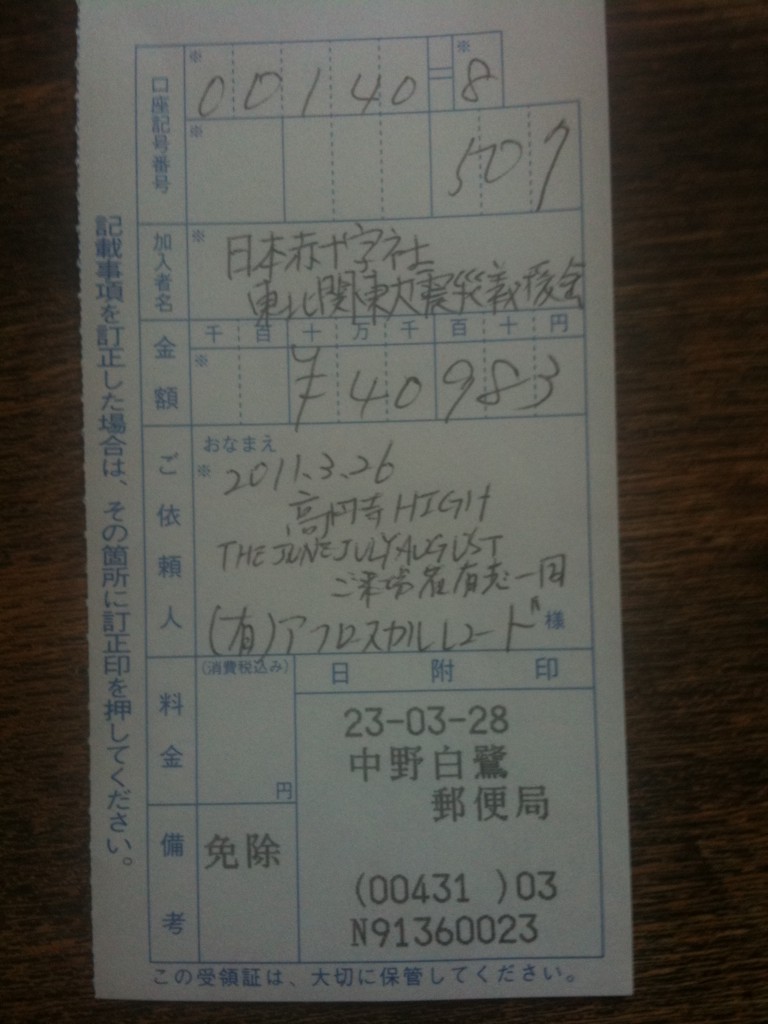 口座記号番号
※ 00140=※8
※ 507
加入者名
※ 日本赤十字社
東北関東大震災義援金
金額
千百十万千百十円
※ ¥40983
ご依頼人
おなまえ
※ 2011.3.26
高円寺HIGH
THE JUNE JULY AUGUST
ご来場者有志一同
(有)アフロスカルレコード 様
料金
(消費税込み)
円
日附印
23-03-28
中野白鷺
郵便局
(00431 )03
N91360023
備考
免除
この受領証は、大切に保管してください。
記載事項を訂正した場合は、その箇所に訂正印を押してください。